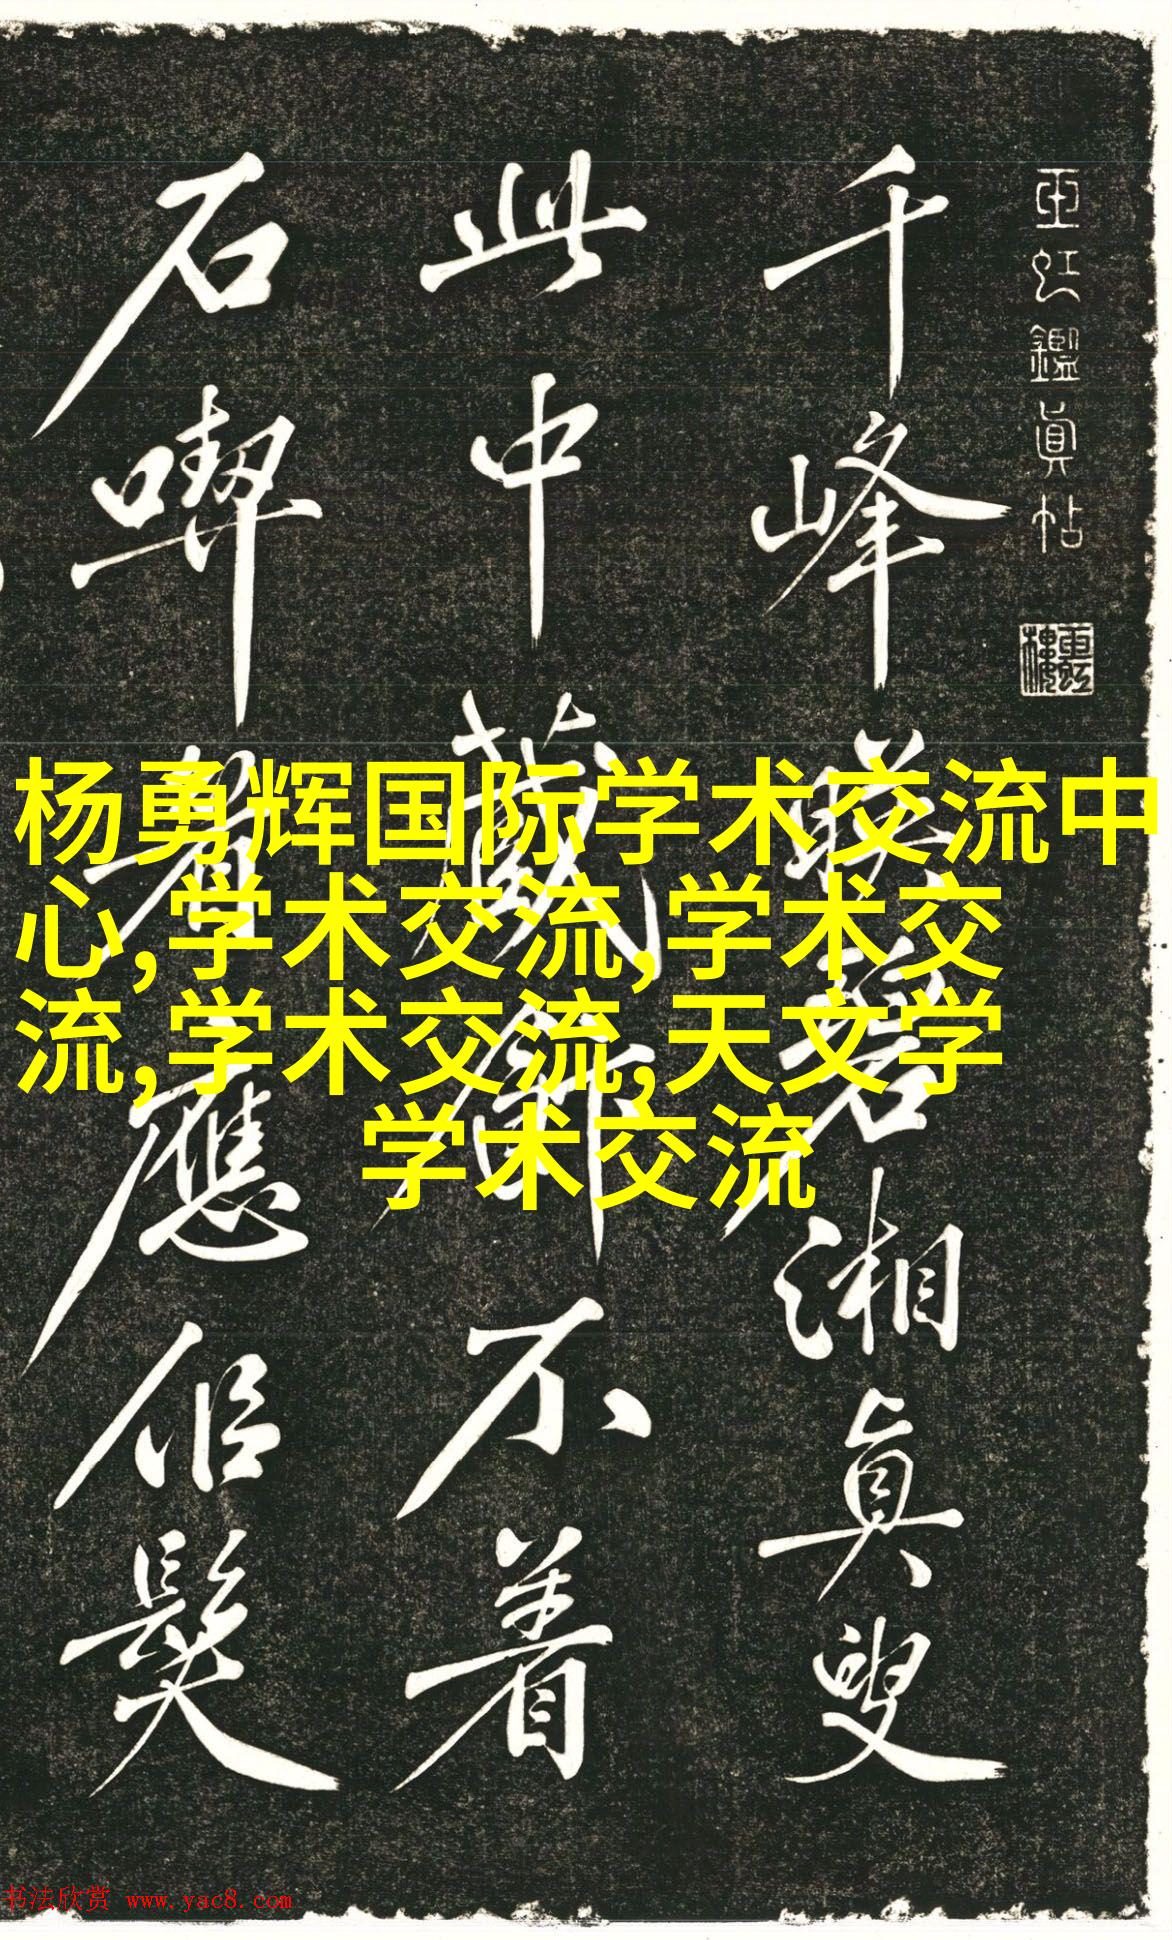 亚虹鑑真帖
千峰映碧湘真叟
此中藏飰不着
石喫眉應伲髮
杨勇辉国际学术交流中
心,学术交流,学术交
流,学术交流,天文学
学术交流
书法欣赏 www.yac8.com